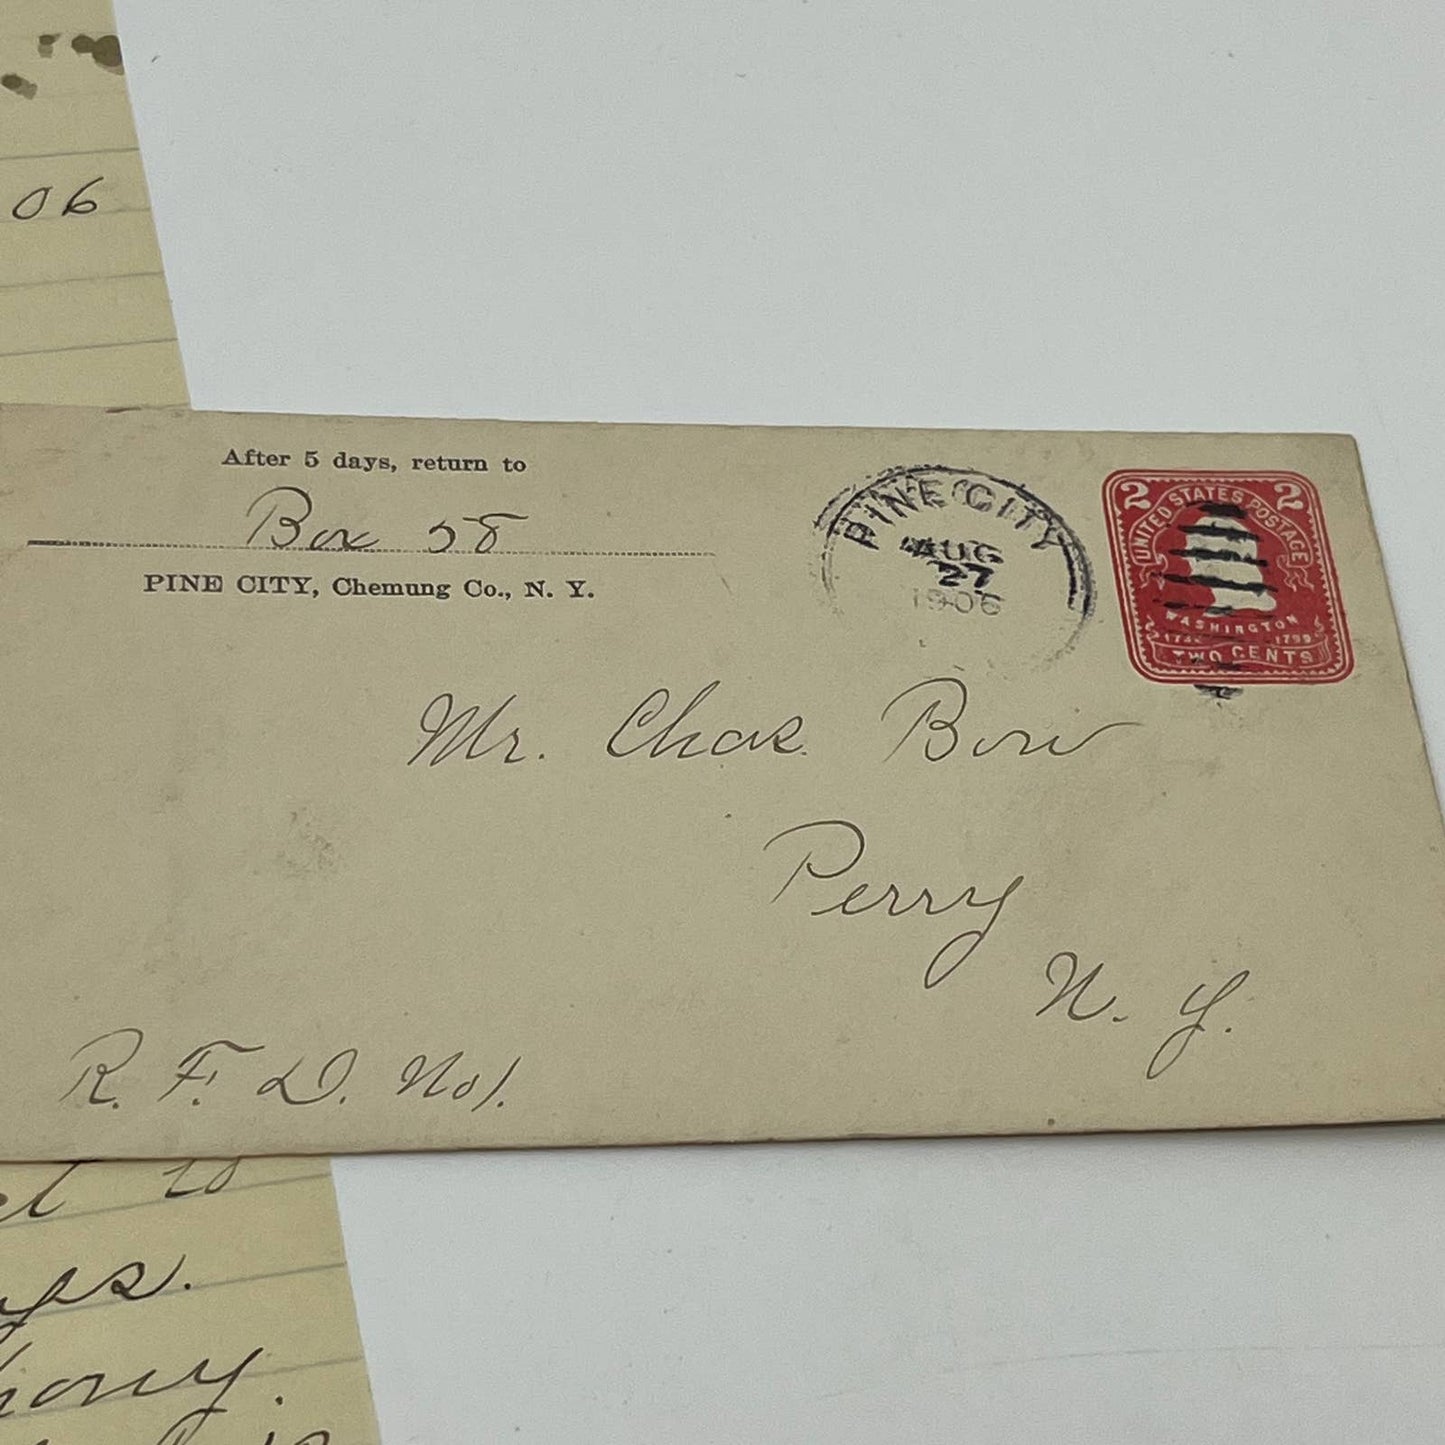 06
After 5 days, return to
Box 58
PINE CITY, Chemung Co., N. Y.
PINE CITY
AUG
27
1906
2 2
UNITED STATES POSTAGE
WASHINGTON
1732 1799
TWO CENTS
Mr. Chas. Bow
Perry
N. Y.
R. F. D. No 1.
to